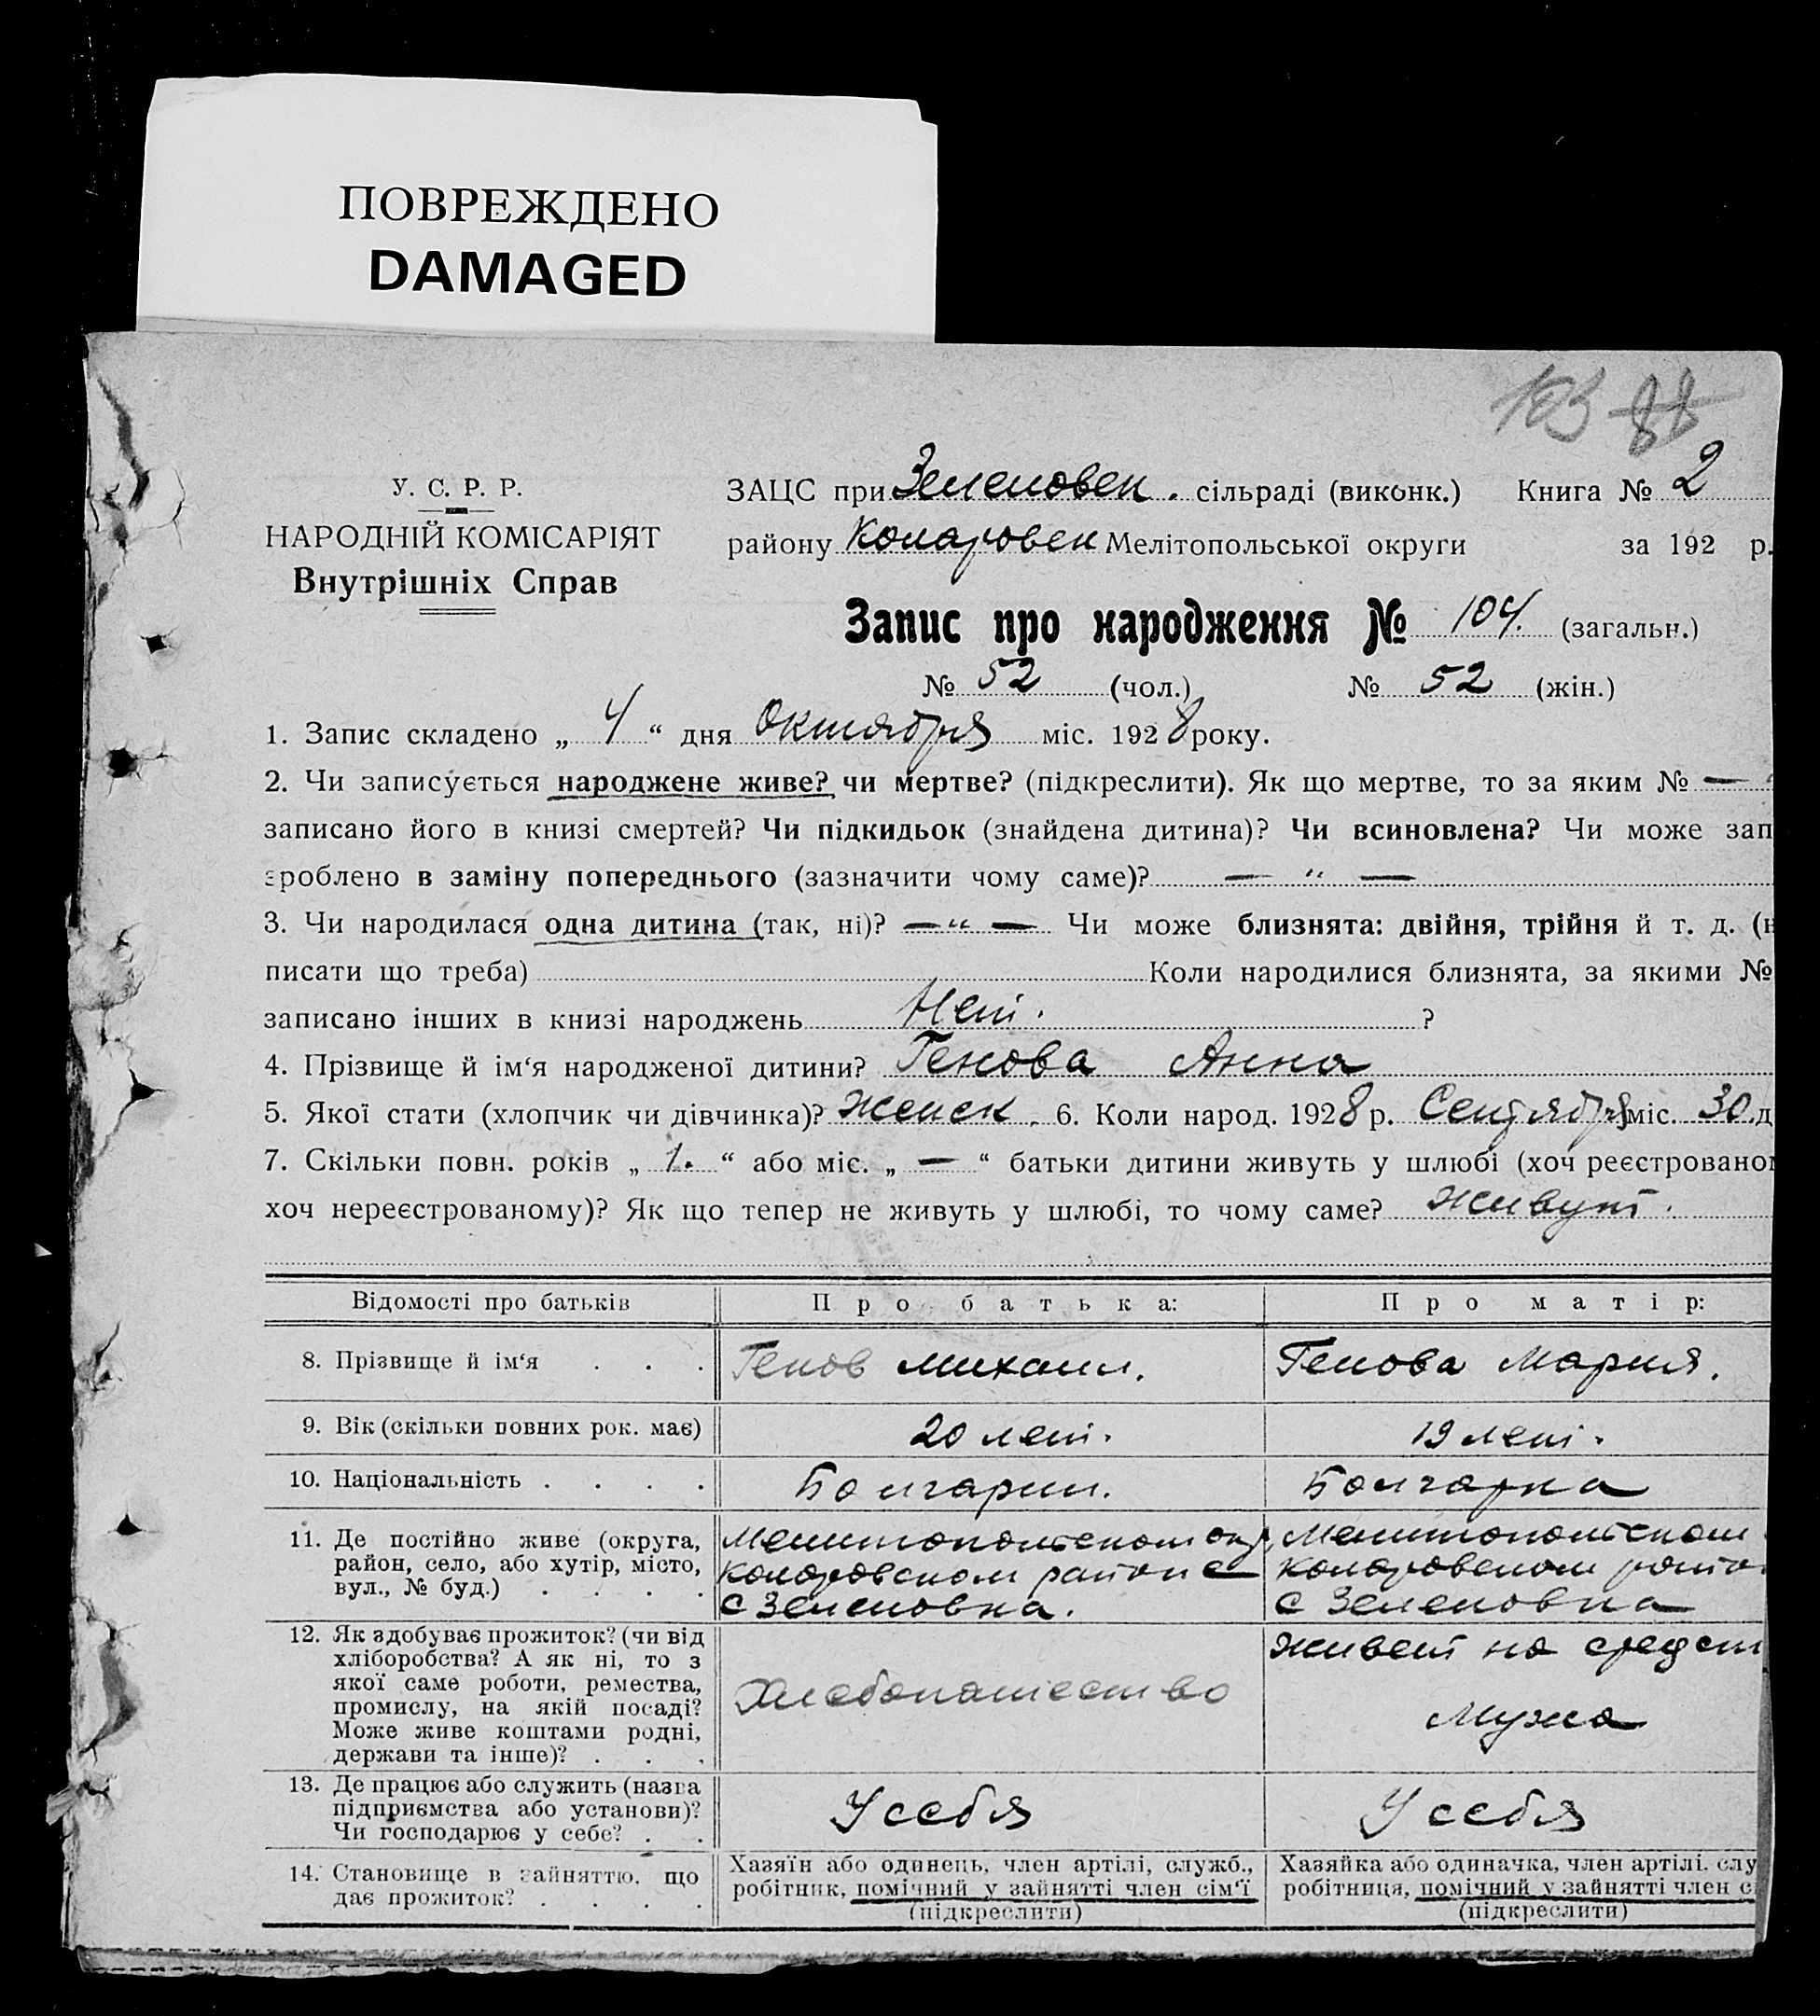 ПОВРЕЖДЕНО
DAMAGED
103 88
У. С. Р. Р.
НАРОДНІЙ КОМІСАРІЯТ
Внутрішніх Справ
ЗАЦС при Зеленовск. сільраді (виконк.) Книга № 2
району Коларовск Мелітопольської округи за 192 р.
Запис про народження № 104. (загальн.)
№ 52 (чол.) № 52 (жін.)
1. Запис складено „ 4 “ дня Октября міс. 1928 року.
2. Чи записується народжене живе? чи мертве? (підкреслити). Як що мертве, то за яким № —
записано його в книзі смертей? Чи підкидьок (знайдена дитина)? Чи всиновлена? Чи може зап
зроблено в заміну попереднього (зазначити чому саме)? — “ —
3. Чи народилася одна дитина (так, ні)? — “ — Чи може близнята: двійня, трійня й т. д. (н
писати що треба) Коли народилися близнята, за якими №
записано інших в книзі народжень Нет. ?
4. Прізвище й ім‘я народженої дитини? Генова Анна
5. Якої стати (хлопчик чи дівчинка)? Женск. 6. Коли народ. 1928 р. Сентября міс. 30. д
7. Скільки повн. років „ 1. “ або міс. „ — “ батьки дитини живуть у шлюбі (хоч реєстровано
хоч нереєстрованому)? Як що тепер не живуть у шлюбі, то чому саме? Живут.
Відомості про батьків Про батька: Про матір:
8. Прізвище й ім‘я . . . Генов Михаил. Генова Мария.
9. Вік (скільки повних рок. має) 20 лет. 19 лет.
10. Національність . . . . Болгарин. Болгарка
11. Де постійно живе (округа, Мелитопольском окр, Мелитопольском
район, село, або хутір, місто, Коларовском район е Коларовском райо
вул., № буд.) . . . . с Зеленовка. с Зеленовка
12. Як здобуває прожиток? (чи від
хліборобства? А як ні, то з
якої саме роботи, ремества,
промислу, на якій посаді?
Може живе коштами родні,
держави та інше)? . . .
Хлебопашество
Живет на средст
Мужа
13. Де працює або служить (назва
підприємства або установи)?
Чи господарює у себе? . .
У себя У себя
14. Становище в зайняттю, що
дає прожиток? . . . .
Хазяїн або одинець, член артілі, служб.,
робітник, помічний у зайнятті член сім‘ї
(підкреслити)
Хазяйка або одиначка, член артілі. слу
робітниця, помічний у зайнятті член с
(підкреслити)